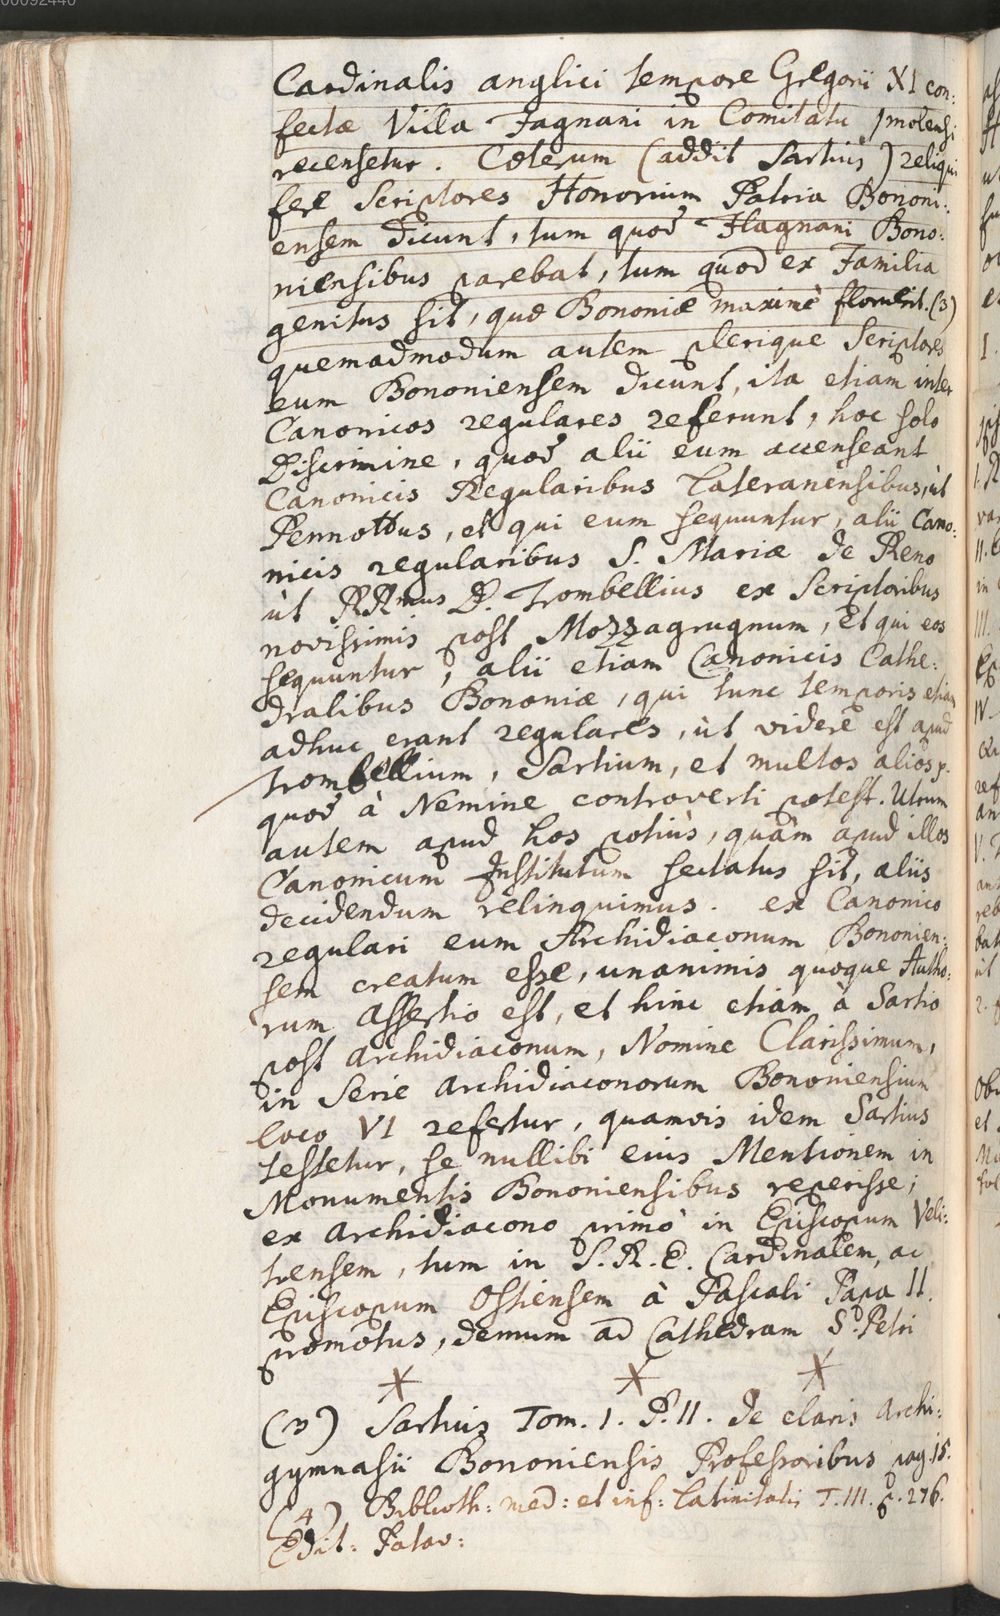 00092440
Cardinalis anglici tempore Gregorii XI con:
fectæ Villa Fagnani in Comitatu Jmolensi
recensetur. Cæterum (addit Sartius) reliqui
fere Scriptores Honorium Patria Bononi:
ensem dicunt, tum quod Flagnani Bono:
niensibus parebat, tum quod ex Familia
genitus sit, quæ Bononiæ maximè floruerit. (3)
quemadmodum autem plerique Scriptores
eum Bononiensem dicunt, ita etiam inter
Canonicos regulares referunt, hoc solo
Discrimine, quod alii eum accenseant
Canonicis Regularibus Lateranensibus, ùt
Pennottus, et qui eum sequuntur, alii Cano:
nicis regularibus S. Mariæ de Reno
ùt RRmus D. Trombellius ex Scriptoribus
novissimis post Mozzagrugnum, Et qui eos
sequuntur, alii etiam Canonicis Cathe:
dralibus Bononiæ, qui tunc temporis etiam
adhuc erant regulares, ùt videre est apud
Trombellium, Sartium, et multos alios p.
quod à Nemine controverti potest. Utrum
autem apud hos potiùs, quàm apud illos
Canonicum Institutum sectatus sit, aliis
decidendum relinquimus. ex Canonico
regulari eum Archidiaconum Bononien:
sem creatum esse, unanimis quoque Autho:
rum Assertio est, et hinc etiam à Sartio
post Archidiaconum, Nomine Clarissimum,
in Serie Archidiaconorum Bononiensium
loco VI refertur, quamvis idem Sartius
testetur, se nullibi eius Mentionem in
Monumentis Bononiensibus reperisse;
ex Archidiacono primò in Episcopum Veli:
trensem, tum in S. R. E. Cardinalem, ac
Episcopum Ostiensem à Pascali Papa II.
promotus, demum ad Cathedram S. Petri
(3) Sartius Tom. I. P. II. de claris Archi:
gymnasii Bononiensis Professoribus pag. 15.
(4) Biblioth: med: et inf: Latinitatis T. III. p. 276.
Edit: Patav: